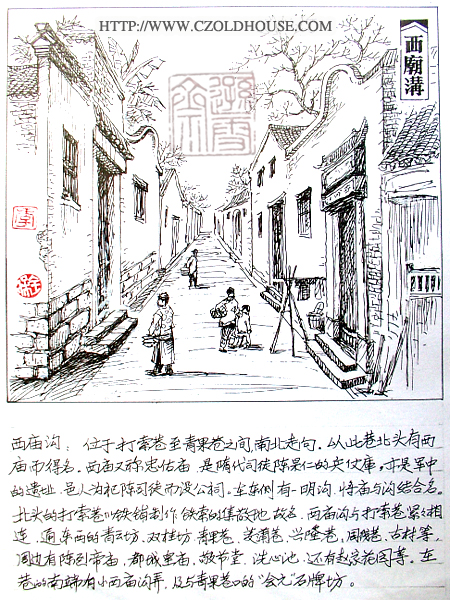 HTTP://WWW.CZOLDHOUSE.COM
西廟溝
西庙沟：位于打索巷至青果巷之间,南北走向。以此巷北头有西
庙而得名。西庙又称忠佑庙,是隋代司徒陈杲仁的兵仗库。亦是军中
的遗址,邑人为祀陈司徒而设公祠。在东侧有一明沟,将庙与沟结合名。
北头的打索巷以铁铺制作铁索的集散地,故名。西庙沟与打索巷紧紧相
连。通东西的青云坊、双桂坊、青果巷、芙蓉巷、兴隆巷、周线巷、古村等,
周边有陈烈帝庙、都城皇庙、敬节堂、洗心池、还有赵家花园等。在
巷的南端有小西庙沟弄,及与青果巷口的"会元"石牌坊。